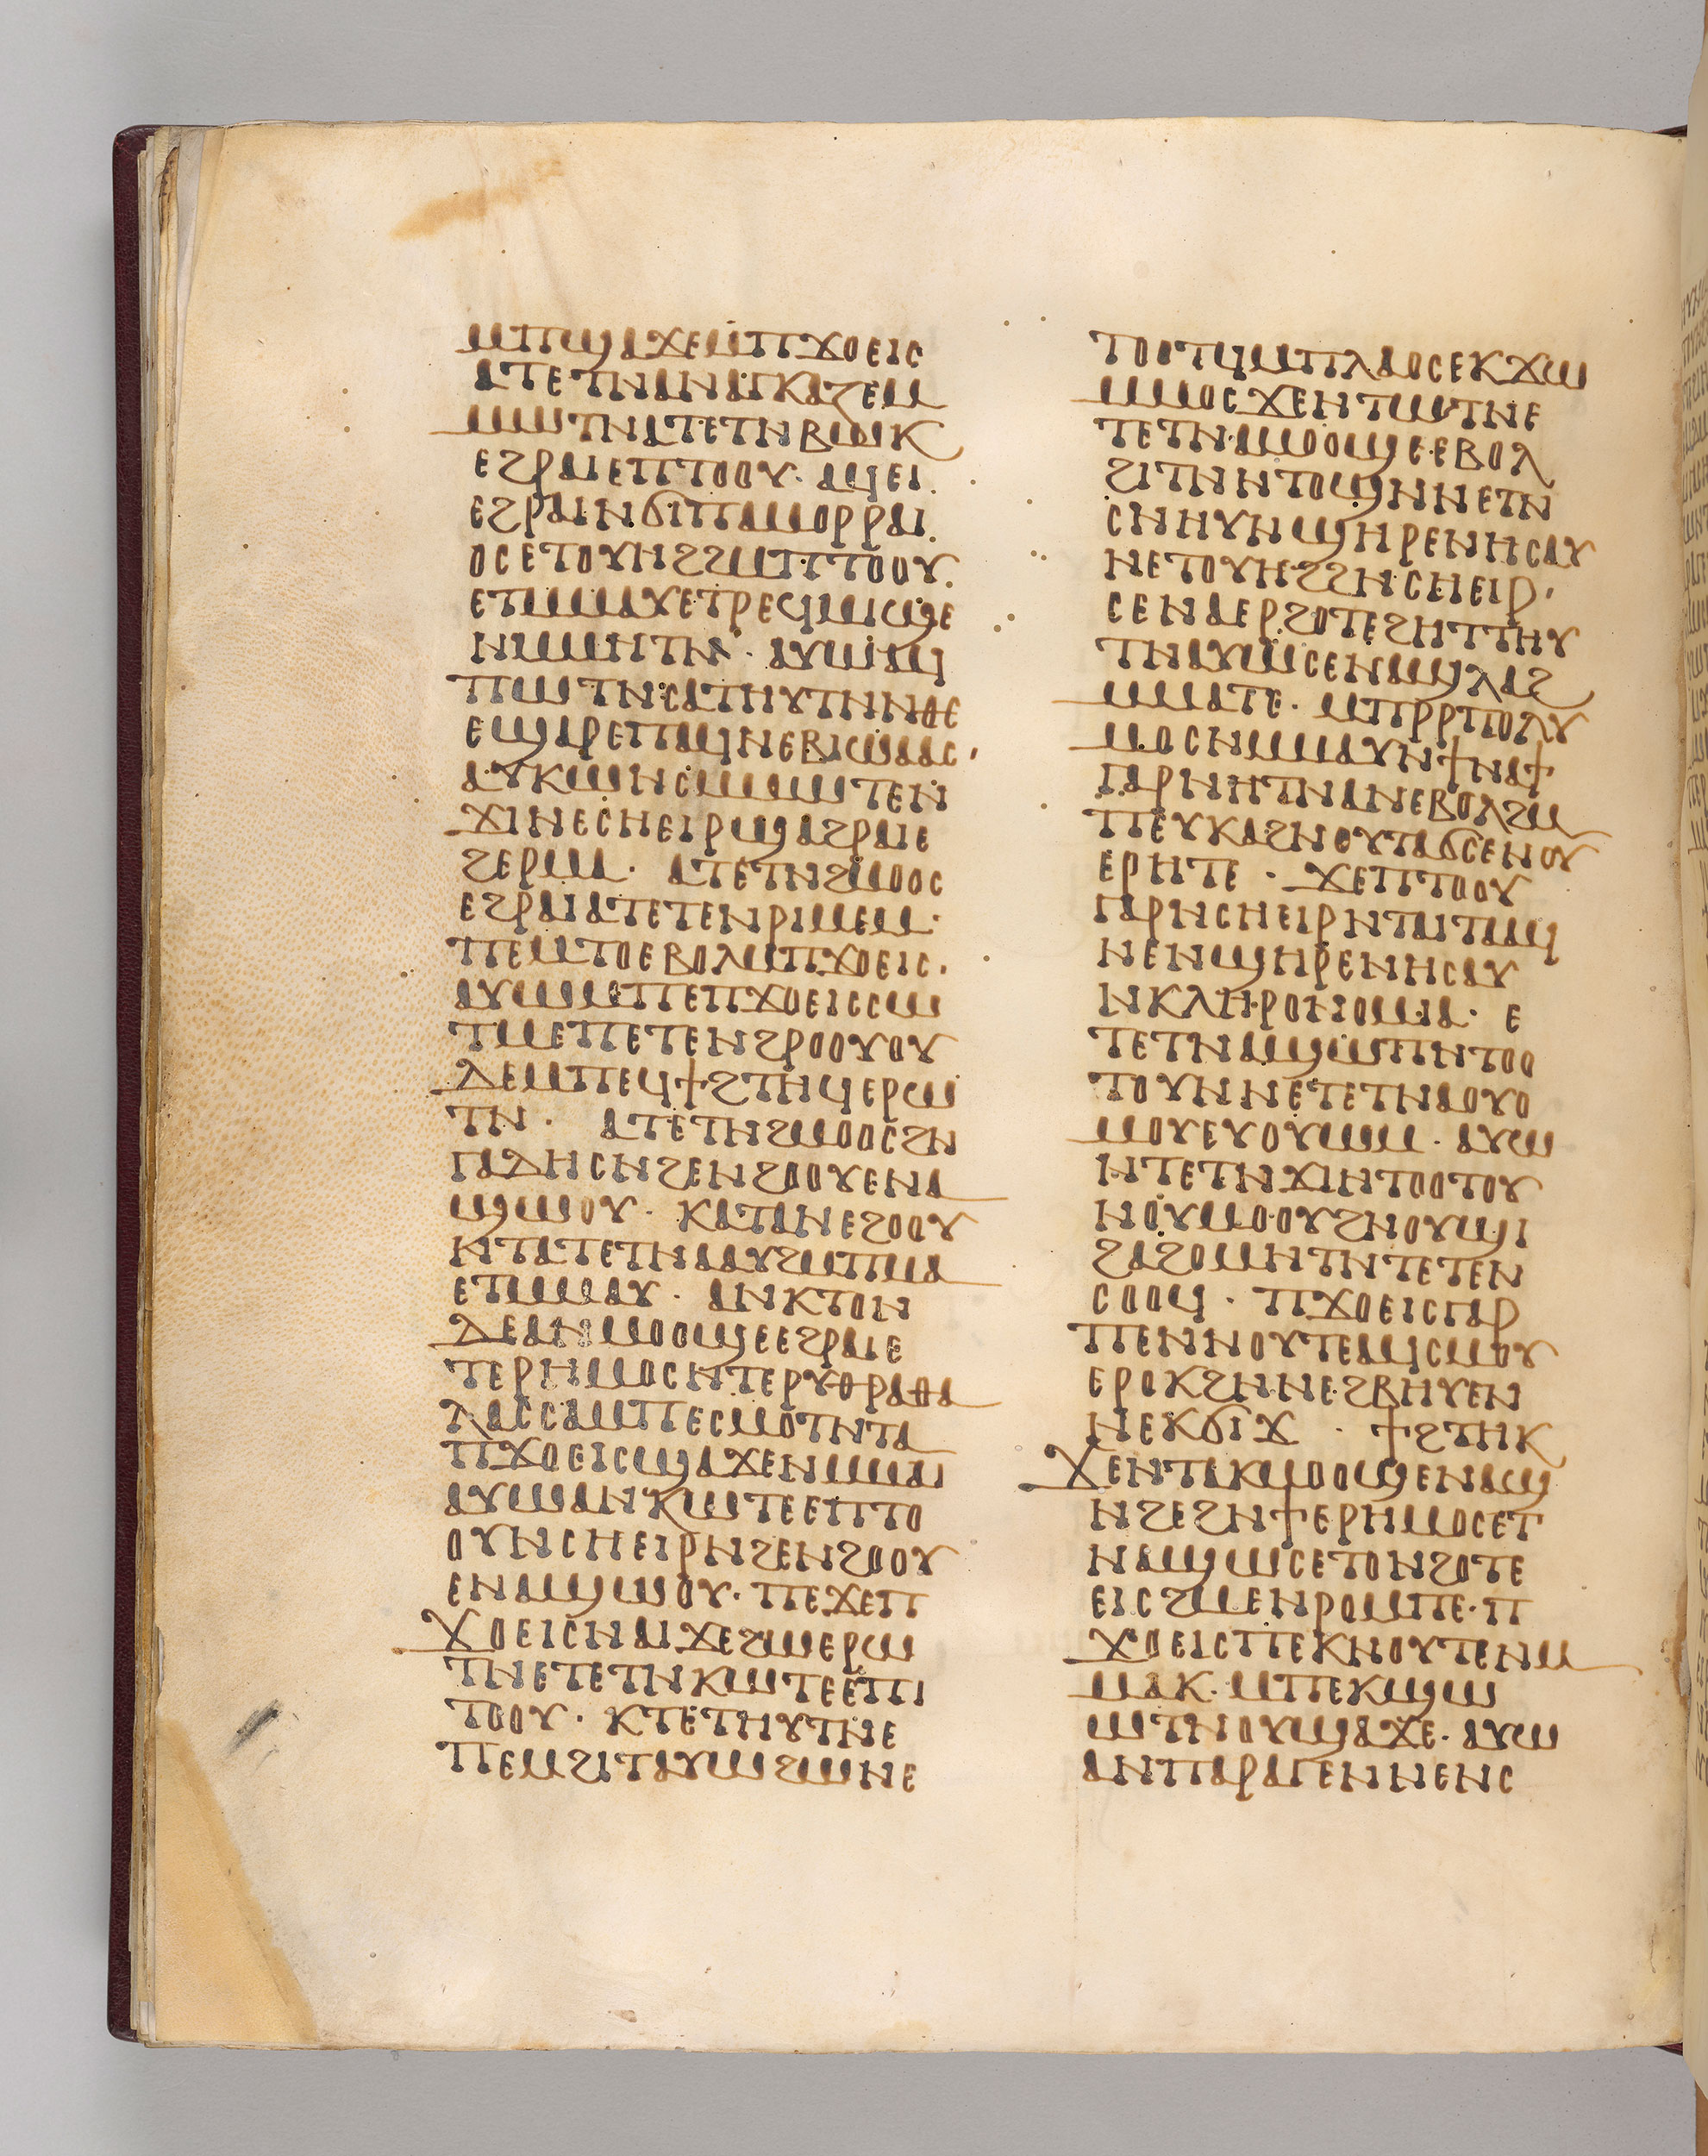 ⲙⲡϣⲁϫⲉⲙⲡϫⲟⲉⲓⲥ
ⲁⲧⲉⲧⲛⲁⲛⲁⲅⲕⲁⲍⲉⲙ
ⲙⲱⲧⲛⲁⲧⲉⲧⲛⲃⲱⲕ
ⲉϩⲣⲁⲓⲉⲡⲧⲟⲟⲩ· ⲁϥⲉⲓ
ⲉϩⲣⲁⲓⲛϭⲓⲡⲁⲙⲟⲣⲣⲁⲓ
ⲟⲥⲉⲧⲟⲩⲏϩϩⲙⲡⲧⲟⲟⲩ
ⲉⲧⲙⲙⲁⲩⲉⲧⲣⲉϥⲙⲓϣⲉ
ⲛⲙⲙⲏⲧⲛ· ⲁⲩⲱⲁϥ
ⲡⲱⲧⲛⲥⲁⲧⲏⲩⲧⲛⲛⲑⲉ
ⲉϣⲁⲣⲉⲡⲁϥⲛⲉⲃⲓⲱⲁⲁⲥ·
ⲁⲩⲕⲱⲛⲥⲙⲙⲱⲧⲉⲛ
ϫⲓⲛⲉⲥⲏⲉⲓⲣϣⲁϩⲣⲁⲓⲉ
ϩⲉⲣⲙⲁ· ⲁⲧⲉⲧⲛϩⲙⲟⲟⲥ
ⲉϩⲣⲁⲓⲁⲧⲉⲧⲉⲛⲣⲓⲙⲉⲙ
ⲡⲉⲙⲧⲟⲉⲃⲟⲗⲙⲡϫⲟⲉⲓⲥ·
ⲁⲩⲱⲙⲡⲉⲡϫⲟⲉⲓⲥⲥⲱ
ⲧⲙⲉⲡⲉⲧⲉⲛϩⲣⲟⲟⲩⲟⲩ
ⲇⲉⲙⲡⲉϥϯϩⲧⲏϥⲉⲣⲱ
ⲧⲛ· ⲁⲧⲉⲧⲛϩⲙⲟⲟⲥϩⲛ
ⲕⲁⲇⲏⲥⲛϩⲉⲛϩⲟⲟⲩⲉⲛⲁ
ϣⲱⲟⲩ· ⲕⲁⲧⲁⲛⲉϩⲟⲟⲩ
ⲛⲧⲁⲧⲉⲧⲛⲁⲁⲩϩⲙⲡⲙⲁ
ⲉⲧⲙⲙⲁⲩ· ⲁⲛⲕⲧⲟⲛ
ⲇⲉⲁⲛⲙⲟⲟϣⲉⲉϩⲣⲁⲓⲉ
ⲧⲉⲣⲏⲙⲟⲥⲛⲧⲉⲣⲩⲑⲣⲁⲑⲁ
ⲗⲁⲥⲥⲁⲙⲡⲉⲥⲙⲟⲧⲛⲧⲁ
ⲡϫⲟⲉⲓⲥϣⲁϫⲉⲛⲙⲙⲁⲓ
ⲁⲩⲱⲁⲛⲕⲱⲧⲉⲉⲡⲧⲟ
ⲟⲩⲛⲥⲏⲉⲓⲣⲛϩⲉⲛϩⲟⲟⲩ
ⲉⲛⲁϣⲱⲟⲩ· ⲡⲉϫⲉⲡ
ϫⲟⲉⲓⲥⲛⲁⲓϫⲉϩⲱⲉⲣⲱ
ⲧⲛⲉⲧⲉⲧⲛⲕⲱⲧⲉⲉⲡⲓ
ⲧⲟⲟⲩ· ⲕⲧⲉⲧⲏⲩⲧⲛⲉ
ⲡⲉⲙϩⲓⲧⲁⲩⲱϩⲱⲛⲉ
ⲧⲟⲟⲧϥⲙⲡⲗⲁⲟⲥⲉⲕϫⲱ
ⲙⲙⲟⲥϫⲉⲛⲧⲱⲧⲛⲉ
ⲧⲉⲧⲛⲁⲙⲟⲟϣⲉⲉⲃⲟⲗ
ϩⲓⲧⲛⲛⲧⲟϣⲛⲛⲉⲧⲛ
ⲥⲛⲏⲩⲛϣⲏⲣⲉⲛⲏⲥⲁⲩ
ⲛⲉⲧⲟⲩⲏϩϩⲛⲥⲏⲉⲓⲣ·
ⲥⲉⲛⲁⲉⲣϩⲟⲧⲉϩⲏⲧⲧⲏⲩ
ⲧⲛⲁⲩⲱⲥⲉⲛⲁϣⲗⲁϩ
ⲙⲙⲁⲧⲉ· ⲙⲡⲣⲣⲡⲟⲗⲩ
ⲙⲟⲥⲛⲙⲙⲁⲩⲛϯⲛⲁϯ
ⲅⲁⲣⲛⲏⲧⲛⲁⲛⲉⲃⲟⲗϩⲙ
ⲡⲉⲩⲕⲁϩⲛⲟⲩⲧⲁϭⲥⲉⲛⲟⲩ
ⲉⲣⲏⲧⲉ· ϫⲉⲡⲧⲟⲟⲩ
ⲅⲁⲣⲛⲥⲏⲉⲓⲣⲛⲧⲁⲓⲧⲁⲁϥ
ⲛⲉⲛϣⲏⲣⲉⲛⲏⲥⲁⲩ
ⲛⲕⲗⲏⲣⲟⲛⲟⲙⲓⲁ· ⲉ
ⲧⲉⲧⲛⲁϣⲱⲡⲛⲧⲟⲟ
ⲧⲟⲩⲛⲛⲉⲧⲉⲧⲛⲁⲟⲩⲟ
ⲙⲟⲩⲉⲩⲟⲩⲱⲙ· ⲁⲩⲱ
ⲛⲧⲉⲧⲛϫⲓⲛⲧⲟⲟⲧⲟⲩ
ⲛⲟⲩⲙⲟⲟⲩϩⲛⲟⲩϣⲓ
ϩⲁϩⲟⲙⲛⲧⲛⲧⲉⲧⲉⲛ
ⲥⲟⲟϥ· ⲡϫⲟⲉⲓⲥⲅⲁⲣ
ⲡⲉⲛⲛⲟⲩⲧⲉⲁϥⲥⲙⲟⲩ
ⲉⲣⲟⲕϩⲛⲛⲉϩⲃⲏⲩⲉⲛ
ⲛⲉⲕϭⲓϫ· ϯϩⲧⲏⲕ
ϫⲉⲛⲧⲁⲕⲙⲟⲟϣⲉⲛⲁϣ
ⲛϩⲉϩⲛϯⲉⲣⲏⲙⲟⲥⲉⲧ
ⲛⲁϣⲱⲥⲉⲧⲟⲛϩⲟⲧⲉ
ⲉⲓⲥϩⲙⲉⲛⲣⲟⲙⲡⲉ·ⲡ
ϫⲟⲉⲓⲥⲡⲉⲕⲛⲟⲩⲧⲉⲛⲙ
ⲙⲁⲕ· ⲙⲡⲉⲕϣⲱ
ⲱⲧⲛⲟⲩϣⲁϫⲉ· ⲁⲩⲱ
ⲁⲛⲡⲁⲣⲁⲅⲉⲛⲛⲉⲛⲥ